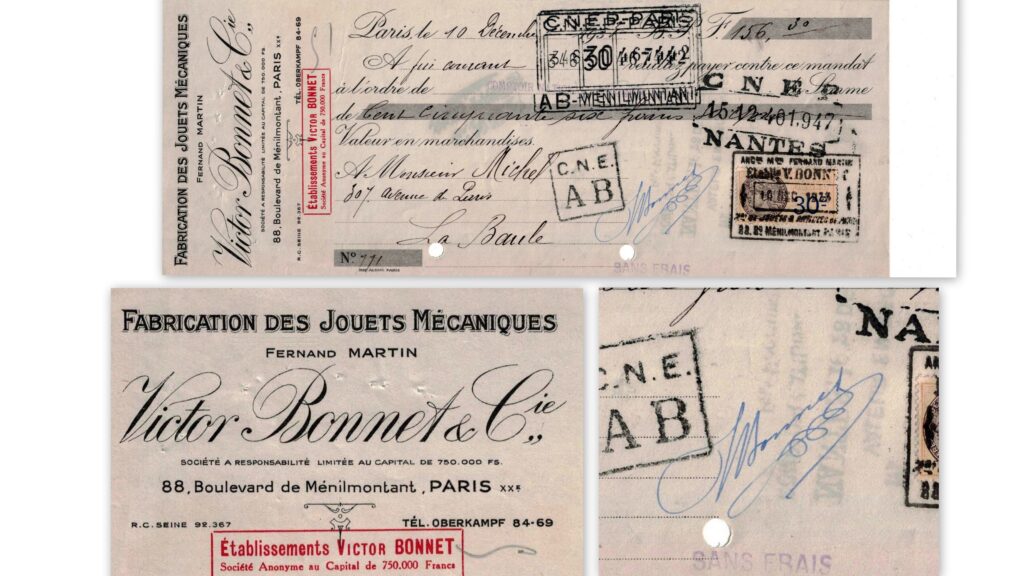 FABRICATION DES JOUETS MÉCANIQUES
FERNAND MARTIN
Victor Bonnet & Cie,,
SOCIÉTÉ A RESPONSABILITÉ LIMITÉE AU CAPITAL DE 750.000 FS.
88, Boulevard de Ménilmontant, PARIS XXE
R.C. SEINE 92.367
TÉL. OBERKAMPF 84-69
Établissements VICTOR BONNET
Société Anonyme au Capital de 750.000 Francs
Paris, le 10 Décembre
F 156,30
C.N.E.P-PARIS
30
AB-MÉNILMONTANT
A qui courant
payer contre ce mandat
à l'ordre de
la Somme
de Cent cinquante six francs
Valeur en marchandises.
A Monsieur Michel
La Baule
No 771
C.N.E.
AB
C N E P
NANTES
ANCns Mon FERNAND MARTIN
Etablts V. BONNET
30
88, Bd MÉNILMONTANT PARIS
SANS FRAIS
FABRICATION DES JOUETS MÉCANIQUES
FERNAND MARTIN
Victor Bonnet & Cie,,
SOCIÉTÉ A RESPONSABILITÉ LIMITÉE AU CAPITAL DE 750.000 FS.
88, Boulevard de Ménilmontant, PARIS XXE
R.C. SEINE 92.367
TÉL. OBERKAMPF 84-69
Établissements VICTOR BONNET
Société Anonyme au Capital de 750.000 Francs
NA
C.N.E.
AB
VBonnet
88
SANS FRAIS